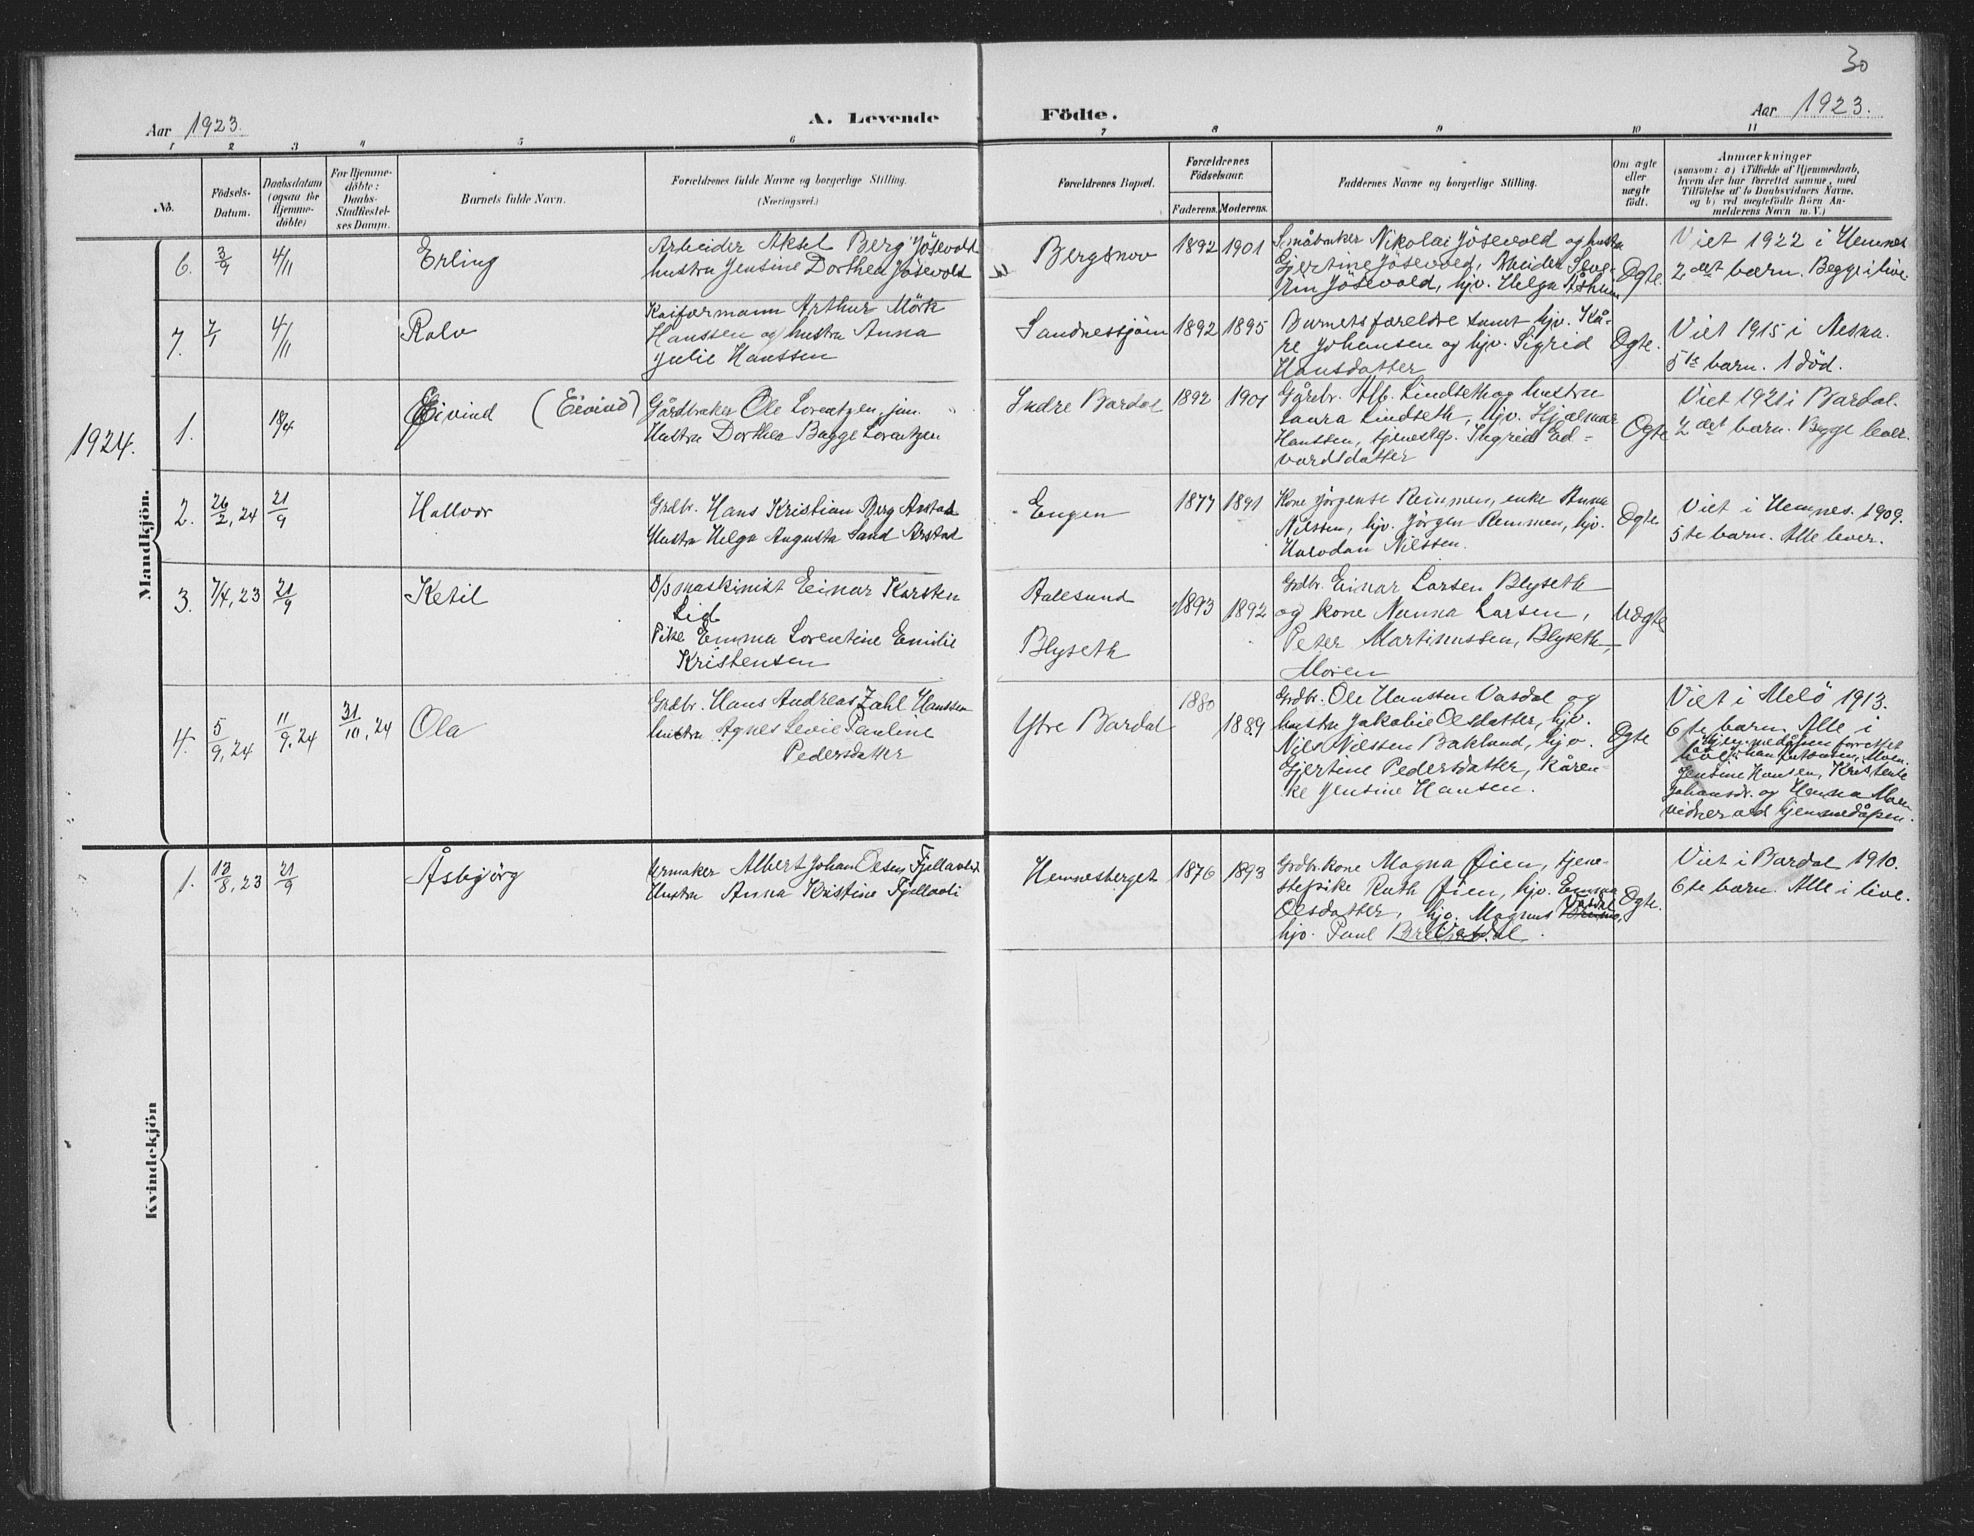 30
Aar 1923.
A. Levende
Födte.
Aar 1923.
1 2 3 4 5 6 7 8 9 10 11
No.
Födsels-
Datum.
Daabsdatum
(ogsaa for
Hjemme-
döbte)
For Hjemme-
döbte:
Daabs-
Stadfæstel-
ses Datum.
Barnets fulde Navn.
Forældrenes fulde Navne og borgerlige Stilling.
(Næringsvei.)
Forældrenes Bopæl.
Forældrenes
Födselsaar.
Faderens. Moderens.
Faddernes Navne og borgerlige Stilling.
Om ægte
eller
uægte
födt.
Anmærkninger
(saasom: a) i Tilfælde af Hjemmedaab,
hvem der har forrettet samme, med
Tilföielse af to Daabsvidners Navne,
og b) ved uægtefödte Börn An-
melderens Navn m. V.)
Mandkjön.
6. 3/9 4/11 Erling
Arbeider Aksel Berg Jösevold
hustru Jensine Dorthea Jösevold
Bergsnov 1892 1901
Småbruker Nikolai Jösevold og hustru
Gjertine Jösevold, Arbeider Seve-
rin Jösevold, hjv. Helga
Ægte.
Viet 1922 i Hemnes
2det barn. Begge i live
7. 7/1 4/11 Rolv
Kaiformann Arthur Mörk
Hanssen og hustru Anna
Julie Hanssen
Sandnessjöen 1892 1895
Barnets foreldre samt hjv. Kå-
re Johansen og hjv. Sigrid
Hansdatter
Ægte.
Viet 1915 i Nesna.
5te barn. 1 död.
1924.
1. 18/4 Eivind (Eivind)
Gårdbruker Ole Lorentzen, jun.
Hustru Dorthea Bugge Lorentzen
Indre Bardal 1892 1901
Gårdbr. Alb. Lindseth og hustru
Laura Lindseth, hjv. Hjalmar
Hanssen, tjenestep. Ingrid Ed-
vardsdatter
Ægte
Viet 1921 i Bardal.
2det barn. Begge lever.
2. 26/2, 24 21/9 Hallvor
Grdbr. Hans Kristian Berg Arstad
Hustru Helga Augusta Sand Arstad
Engen 1877 1891
Kone Jörgense Remmen, enke Anna
Nilssen, hjv. Jörgen Remmen, hjv.
Harodan Nilssen.
Ægte
Viet i Hemnes. 1909.
5te barn. Alle lever.
3. 7/4, 23 21/9 Ketil
D/s maskinist Einar Karsten
Lid
Pike Emma Lorentine Emilie
Kristensen
Aalesund
Blyseth
1893 1892
Grdbr. Einar Larsen Blyseth
og kone Nanna Larsen,
Peter Martinussen, Blyseth,
Moren
Uægte
4. 5/9, 24 11/9, 24 31/10, 24 Ola
Grdbr. Hans Andreas Zahl Hanssen
hustru Agnes Levie Pauline
Pedersdatter
Ytre Bardal 1880 1889
Grdbr. Ole Hanssen Vasdal og
hustru Jakobie Olsdatter, hjv.
Nils Nilssen Bakland, hjv.
Gjertine Pedersdatter, Kåren-
ke Jensine Hansen.
Ægte
Viet i Melö 1913.
6te barn. Alle i
live. Hjemmedåpen forrettet
Jensine Hansen, Kristente
Johansdr. og Hanna Moen
vidner ved hjemmedåpen.
Kvindekjön
1. 13/8, 23 21/9 Åsbjörg
Urmaker Albert Johan Olsen Fjellavli
Hustru Anna Kristine Fjellavli
Hemnesberget 1876 1893
Grdbr.kone Magna Öien, tjene-
stepike Ruth Öien, hjv. Emma
Olsdatter, hjv. Magnus Vasdal
hjv. Paul Vasdal.
Ægte.
Viet i Bardal 1910.
6te barn. Alle i live.